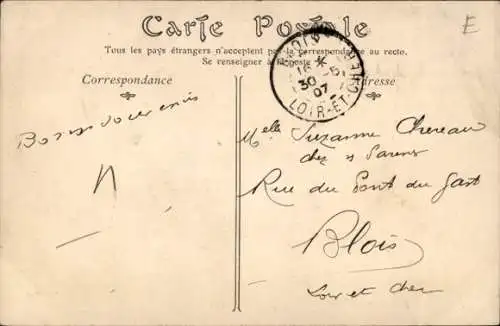 Carte Postale
E
Tous les pays étrangers n'acceptent pas la correspondance au recto.
Se renseigner à la poste
Correspondance
Adresse
16 *
30 -5
07
LOIR-ET-CHER
Bons souvenirs
Melle Suzanne Chereau
chez s Parents
Rue du Pont du Gast
Blois
Loir et cher